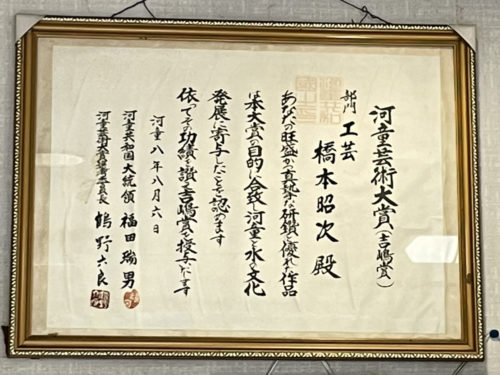 河童芸術大賞(吉嶋賞)
部門 工芸
橋本昭次 殿
あなたの旺盛かつ真摯な研鑽と優れた作品
は本大賞の目的に合致し河童と水の文化
発展に寄与したことを認めます
依ってその功績を讃え吉嶋賞を授与いたします
河童八年八月六日
河童共和国大統領 福田瑞男
河童芸術大賞審査委員長 鶴野六良